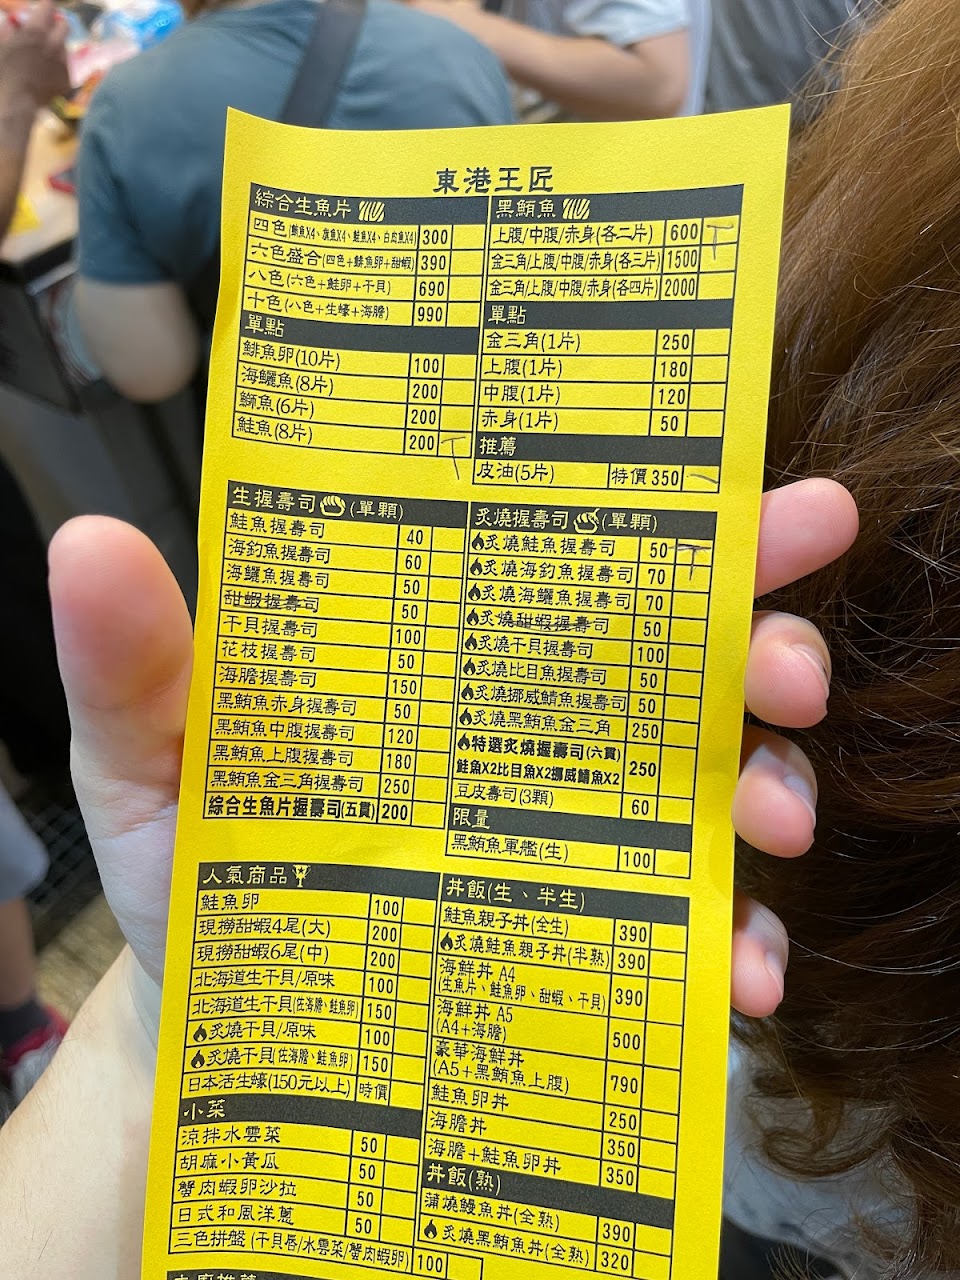 東港王匠
綜合生魚片
四色(鮪魚X4、旗魚X4、鮭魚X4、白肉魚X4) 300
六色盛合(四色+鯡魚卵+甜蝦) 390
八色(六色+鮭卵+干貝) 690
十色(八色+生蠔+海膽) 990
單點
鯡魚卵(10片) 100
海鱺魚(8片) 200
鰤魚(6片) 200
鮭魚(8片) 200
黑鮪魚
上腹/中腹/赤身(各二片) 600
金三角/上腹/中腹/赤身(各三片) 1500
金三角/上腹/中腹/赤身(各四片) 2000
單點
金三角(1片) 250
上腹(1片) 180
中腹(1片) 120
赤身(1片) 50
推薦
皮油(5片) 特價350
生握壽司(單顆)
鮭魚握壽司 40
海釣魚握壽司 60
海鱺魚握壽司 50
甜蝦握壽司 50
干貝握壽司 100
花枝握壽司 50
海膽握壽司 150
黑鮪魚赤身握壽司 50
黑鮪魚中腹握壽司 120
黑鮪魚上腹握壽司 180
黑鮪魚金三角握壽司 250
綜合生魚片握壽司(五貫) 200
炙燒握壽司(單顆)
炙燒鮭魚握壽司 50
炙燒海釣魚握壽司 70
炙燒海鱺魚握壽司 70
炙燒甜蝦握壽司 50
炙燒干貝握壽司 100
炙燒比目魚握壽司 50
炙燒挪威鯖魚握壽司 50
炙燒黑鮪魚金三角 250
特選炙燒握壽司(六貫)
鮭魚X2比目魚X2挪威鯖魚X2 250
豆皮壽司(3顆) 60
限量
黑鮪魚軍艦(生) 100
人氣商品
鮭魚卵 100
現撈甜蝦4尾(大) 200
現撈甜蝦6尾(中) 200
北海道生干貝/原味 100
北海道生干貝(佐海膽、鮭魚卵) 150
炙燒干貝/原味 100
炙燒干貝(佐海膽、鮭魚卵) 150
日本活生蠔(150元以上) 時價
小菜
涼拌水雲菜 50
胡麻小黃瓜 50
蟹肉蝦卵沙拉 50
日式和風洋蔥 50
三色拼盤(干貝唇/水雲菜/蟹肉蝦卵) 100
丼飯(生、半生)
鮭魚親子丼(全生) 390
炙燒鮭魚親子丼(半熟) 390
海鮮丼 A4
(生魚片、鮭魚卵、甜蝦、干貝) 390
海鮮丼 A5
(A4+海膽) 500
豪華海鮮丼
(A5+黑鮪魚上腹) 790
鮭魚卵丼 250
海膽丼 350
海膽+鮭魚卵丼 350
丼飯(熟)
蒲燒鰻魚丼(全熟) 390
炙燒黑鮪魚丼(全熟) 320